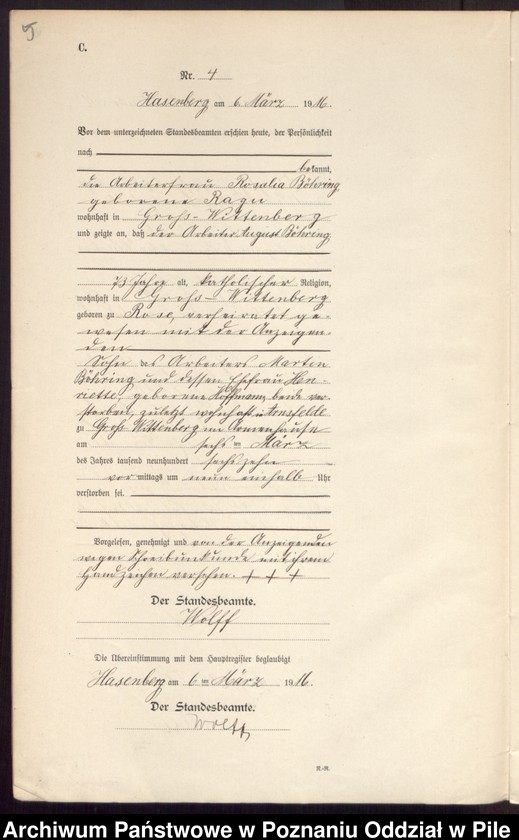 5
C.
Nr. 4
Hasenberg am 6. März 1916.
Vor dem unterzeichneten Standesbeamten erschien heute, der Persönlichkeit
nach
bekannt,
die Arbeiterfrau Rosalia Böhring
geborene Ragu
wohnhaft in Groß-Wittenberg
und zeigte an, daß der Arbeiter August Böhring
73 Jahre alt, katholischer Religion,
wohnhaft in Groß-Wittenberg
geboren zu Rose, verheiratet ge-
wesen mit der Anzeigen-
den
Sohn des Arbeiters Martin
Böhring und dessen Ehefrau Hen-
riette, geborene Hoffmann, beide ver-
storben, zuletzt wohnhaft in Arnsfelde
zu Groß Wittenberg im Armenhause
am sechsten März
des Jahres tausend neunhundert sechszehn
vormittags um neun einhalb Uhr
verstorben sei.
Vorgelesen, genehmigt und von der Anzeigenden
wegen Schreibunkunde mit ihrem
Handzeichen versehen. + + +
Der Standesbeamte.
Wolff
Die Übereinstimmung mit dem Hauptregister beglaubigt
Hasenberg am 6ten März 1916.
Der Standesbeamte.
Wolff
Archiwum Państwowe w Poznaniu Oddział w Pile